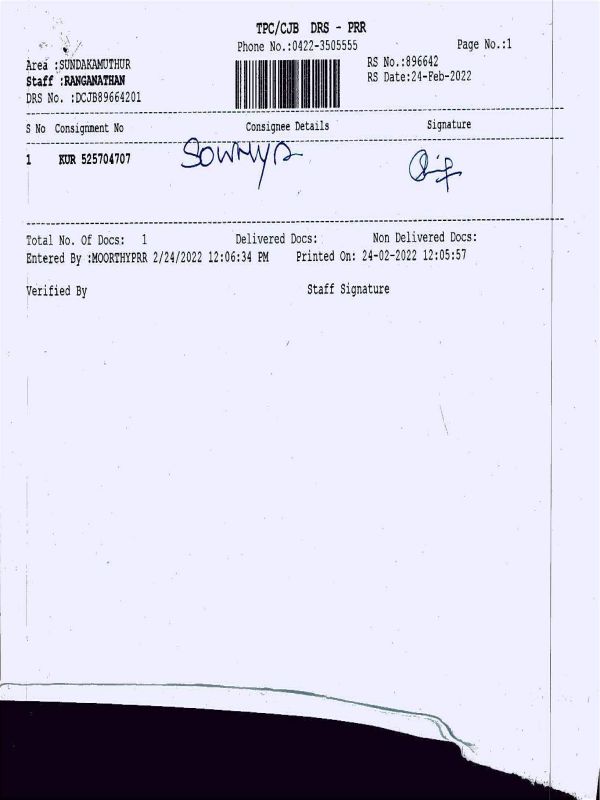 TPC/CJB DRS - PRR
Phone No.:0422-3505555 Page No.:1
Area :SUNDAKAMUTHUR RS No.:896642
Staff :RANGANATHAN RS Date:24-Feb-2022
DRS No. :DCJB89664201
S No Consignment No Consignee Details Signature
1 KUR 525704707 SOWMYA
Total No. Of Docs: 1 Delivered Docs: Non Delivered Docs:
Entered By :MOORTHYPRR 2/24/2022 12:06:34 PM Printed On: 24-02-2022 12:05:57
Verified By Staff Signature